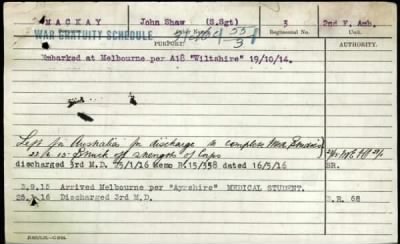 MACKAY John Shaw (S.Sgt) 3 2nd F. Amb.
WAR GRATUITY SCHEDULE Regimental No. Unit.
PURPORT AUTHORITY.
Embarked at Melbourne per A18 "Wiltshire" 19/10/14.
Left for Australia for discharge to complete Med. Studies
Struck off strength of Corps
discharged 3rd M.D. /1/16 Memo R.15/358 dated 16/5/16 BR.
3.9.15 Arrived Melbourne per "Ayrshire" MEDICAL STUDENT.
.16 Discharged 3rd M.D. D.R. 68